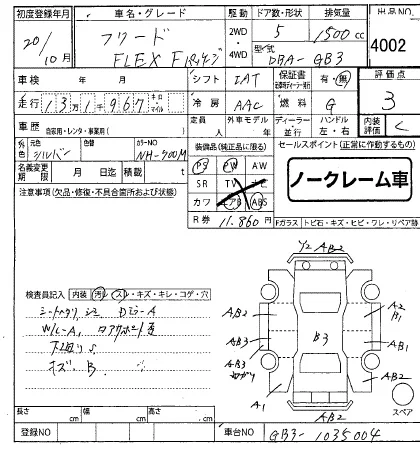 初度登録年月 車名・グレード 駆動 ドア数・形状 排気量 出品NO
20/10月 フリード FLEX Fパッケージ 2WD 4WD 5 1500cc 4002
型式 DBA-GB3
車検 年 月 シフト IAT 保証書 有・無 評価点 3
走行 13万1千967 キロ マイル 冷房 AAC 燃料 G
車歴 自家用・レンタ・事業用( ) 定員 人 外車モデル 年 ディーラー 並行 ハンドル 左・右 内装評価 C
外色 元色 シルバー 色替 カラーNO NH-700M 装備品(純正品に限る) セールスポイント(正常に作動するもの)
名義変更期限 月 日迄 積載量 t PS PW AW
注意事項(欠品・修復・不具合箇所および状態) SR TV ナビ ノークレーム車
カワ エアB ABS
R券 11,860円 Fガラス トビ石・キズ・ヒビ・ワレ・リペア跡
Y2 AB2
検査員記入 内装 汚レ・スレ・キズ・キレ・コゲ・穴
シートスリ シミ
W/L-A
下廻りS
キズ、B
AB2 A2 B1
AB3 B3 AB1
AB3
A1 AB2 AB2
スペア
長さ cm 幅 cm 高さ cm
登録NO 車台NO GB3-1035004